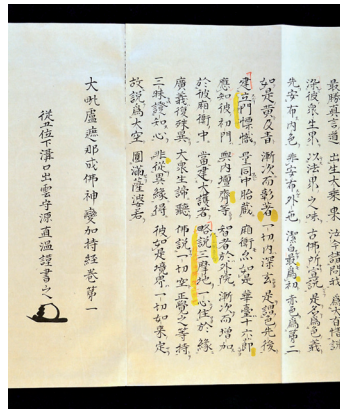 最勝真言道 出生大乘果 汝今請問我 爲大有情說
染彼衆生界 以法界之味 古佛所宣說 是名爲色義
先安布內色 非安布外色 潔白最爲初 赤色爲第二
如是黃及青 漸次而彰著 一切內深玄 是謂色先後
建立門幖幟 量同中胎藏 廂衛亦如是 華臺十六節
應知彼初門 與內壇齊等 智者於外院 漸次而增加
於彼廂衛中 當建大護者 略說三摩地 一心住於緣
廣義復殊異 大衆生諦聽 佛說一切空 正覺之等持
三昧證知心 非從異緣得 彼如是境界 一切如來定
故說爲大空 圓滿薩婆若
大毗盧遮那成佛神變加持經卷第一
從五位下溝口出雲守源直溫謹書之